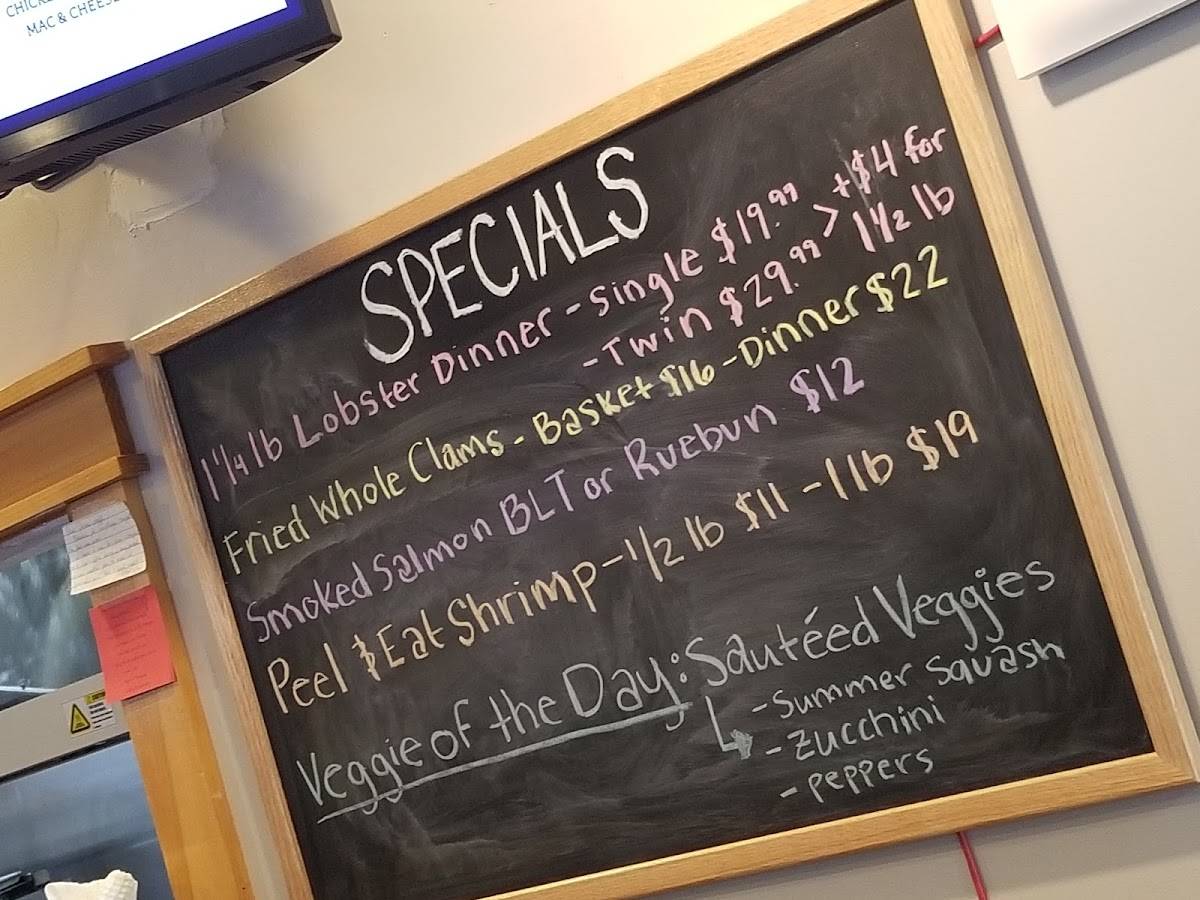 MAC & CHEESE
SPECIALS
1 1/4 lb Lobster Dinner - Single $19.99 > +$4 for
- Twin $29.99 1 1/2 lb
Fried Whole Clams - Basket $16 - Dinner $22
Smoked Salmon BLT or Ruebun $12
Peel & Eat Shrimp - 1/2 lb $11 - 1 lb $19
Veggie of the Day: Sautéed Veggies
- Summer Squash
- Zucchini
- Peppers